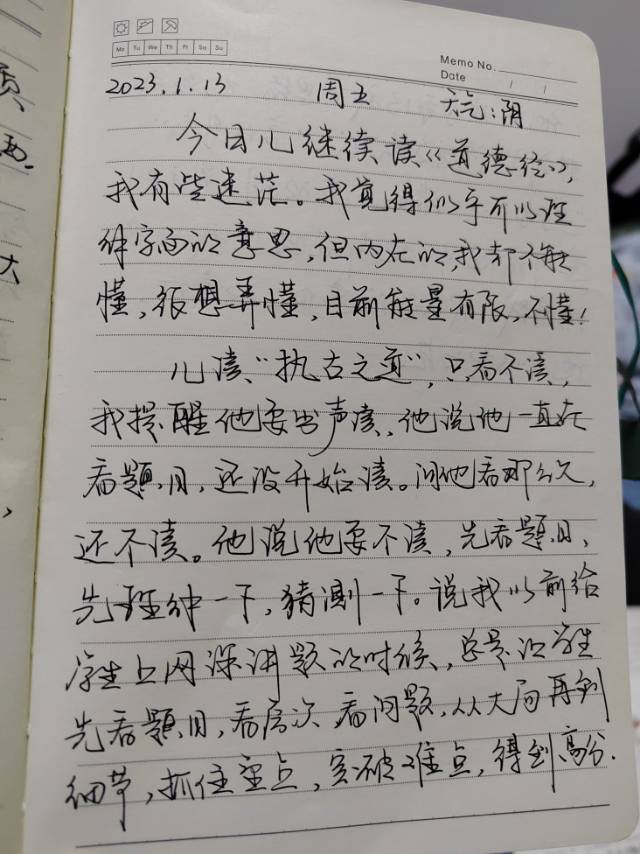 Mo Tu We Th Fr Sa Su
Memo No.
Date / /
2023.1.13 周五 天气:阴
今日儿继续读《道德经》,
我有些迷茫。我觉得似乎可以理
解字面的意思,但内在的,我却不能
懂,很想弄懂,目前能量有限,不懂!
儿读“执古之道”,只看不读,
我提醒他要出声读,他说他一直在
看题目,还没开始读。问他看那么久,
还不读。他说他要不读,先看题目,
先理解一下,猜测一下。说我以前给
学生上网课讲题的时候,总是让学生
先看题目,看层次,看问题,从大局再到
细节,抓住重点,突破难点,得到高分.